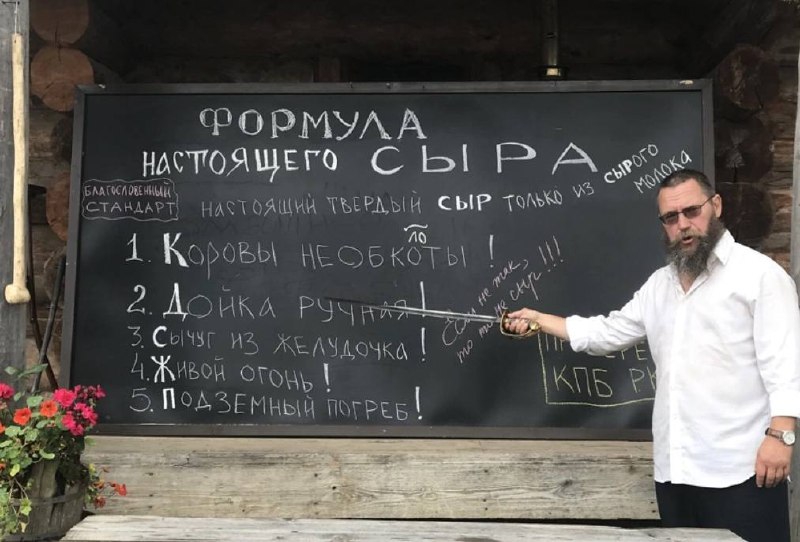 ФОРМУЛА
НАСТОЯЩЕГО СЫРА
БЛАГОСЛОВЕННЫЙ
СТАНДАРТ
НАСТОЯЩИЙ ТВЕРДЫЙ СЫР ТОЛЬКО ИЗ СЫРОГО
МОЛОКА
ЛО
1. КОРОВЫ НЕОБКОТЫ!
2. ДОЙКА РУЧНАЯ!
3. СЫЧУГ ИЗ ЖЕЛУДОЧКА!
4. ЖИВОЙ ОГОНЬ!
5. ПОДЗЕМНЫЙ ПОГРЕБ!
Если не так,
то то не сыр!!!
КПБ